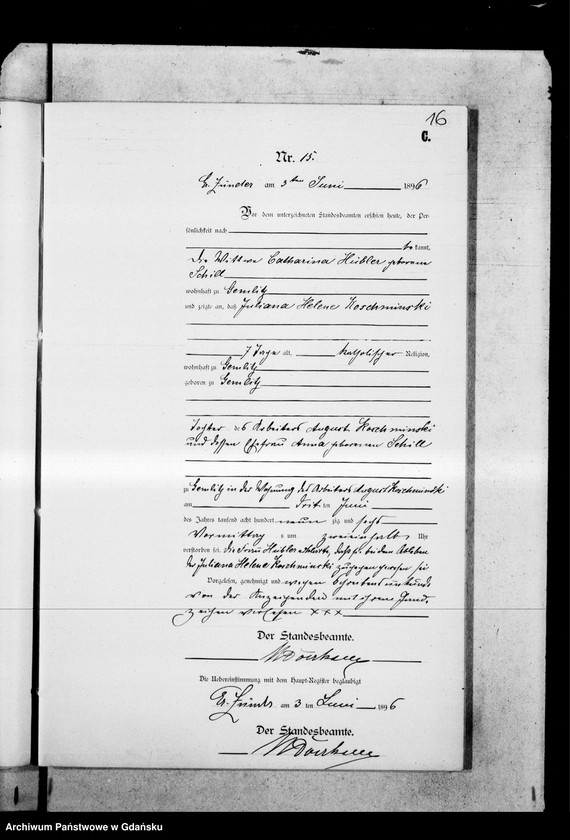 16
C.
Nr. 15.
Gr. Zünder am 3ten Juni 1896
Vor dem unterzeichneten Standesbeamten erschien heute, der Per-
sönlichkeit nach
be kannt,
die Wittwe Catharina Hübler geborene
Schill
wohnhaft zu Gemlitz
und zeigte an, daß Juliana Helene Koschminski
7 Tage alt, katholischer Religion,
wohnhaft zu Gemlitz
geboren zu Gemlitz
Tochter des Arbeiters August Koschminski
und dessen Ehefrau Anna geborenen Schill
zu Gemlitz in der Wohnung des Arbeiters August Koschminski
am dritten Juni
des Jahres tausend acht hundert neun zig und sechs
Vormittags um zweieinhalb Uhr
verstorben sei. die Frau Hübler erklärte, daß sie bei dem Ableben
der Juliana Helene Koschminski zugegen gewesen sei
Vorgelesen, genehmigt und wegen Schreibensunkunde
von der Anzeigenden mit ihrem Hand-
zeichen versehen xxx
Der Standesbeamte.
Die Uebereinstimmung mit dem Haupt-Register beglaubigt
Gr. Zünder am 3 ten Juni 1896
Der Standesbeamte.
Archiwum Państwowe w Gdańsku